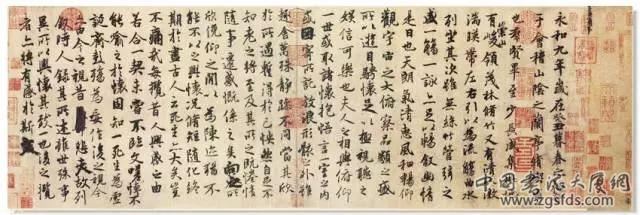 永和九年歲在癸丑暮春之初會
于會稽山陰之蘭亭脩稧事
也群賢畢至少長咸集此地
有崇山峻領茂林脩竹又有清流激
湍暎帶左右引以為流觴曲水
列坐其次雖無絲竹管弦之
盛一觴一詠亦足以暢敘幽情
是日也天朗氣清惠風和暢仰
觀宇宙之大俯察品類之盛
所以遊目騁懷足以極視聽之
娛信可樂也夫人之相與俯仰
一世或取諸懷抱悟言一室之內
或因寄所託放浪形骸之外雖
趣舍萬殊靜躁不同當其欣
於所遇暫得於己怏然自足不
知老之將至及其所之既惓情
隨事遷感慨係之矣向之所
欣俛仰之閒以為陳迹猶不
能不以之興懷況脩短隨化終
期於盡古人云死生亦大矣豈
不痛哉每攬昔人興感之由
若合一契未嘗不臨文嗟悼不
能喻之於懷固知一死生為虛
誕齊彭殤為妄作後之視今
亦由今之視昔悲夫故列
敘時人錄其所述雖世殊事
異所以興懷其致一也後之攬
者亦將有感於斯文
中国书法大厦网
www.zgsfds.com